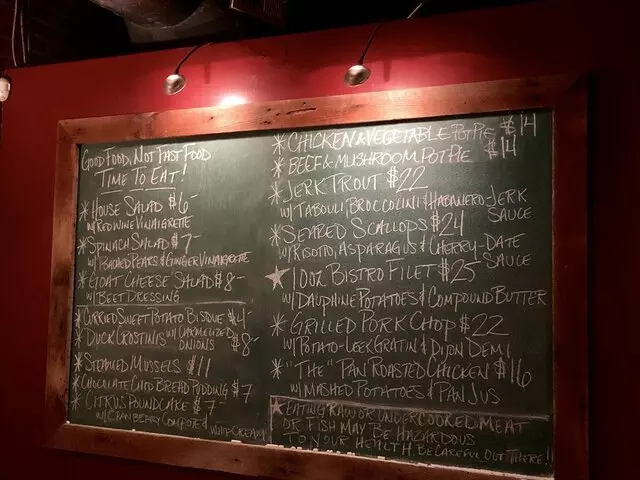 GOOD FOOD, NOT FAST FOOD
TIME TO EAT!
* HOUSE SALAD $6-
W/ RED WINE VINAIGRETTE
* SPINACH SALAD $7-
W/ POACHED PEARS & GINGER VINAIGRETTE
* GOAT CHEESE SALAD $8-
W/ BEET DRESSING
* CURRIED SWEET POTATO BISQUE $4-
* DUCK CROSTINIS W/ CARMELIZED
ONIONS $8-
* STEAMED MUSSELS $11
* CHOCOLATE CHIP BREAD PUDDING $7
* CITRUS POUNDCAKE $7
W/ CRANBERRY COMPOTE & WHIP CREAM
* CHICKEN & VEGETABLE POT PIE $14
* BEEF & MUSHROOM POT PIE $14
* JERK TROUT $22
W/ TABOULI, BROCCOLINI & HABANERO-JERK
SAUCE
* SEARED SCALLOPS $24
W/ RISOTTO, ASPARAGUS & CHERRY-DATE
SAUCE
★ 10OZ BISTRO FILET $25
W/ DAUPHINE POTATOES & COMPOUND BUTTER
* GRILLED PORK CHOP $22
W/ POTATO-LEEK GRATIN & DIJON DEMI
* "THE" PAN ROASTED CHICKEN $16
W/ MASHED POTATOES & PAN JUS
★ EATING RAW OR UNDERCOOKED MEAT
OR FISH MAY BE HAZARDOUS
TO YOUR HEALTH. BE CAREFUL OUT THERE!!